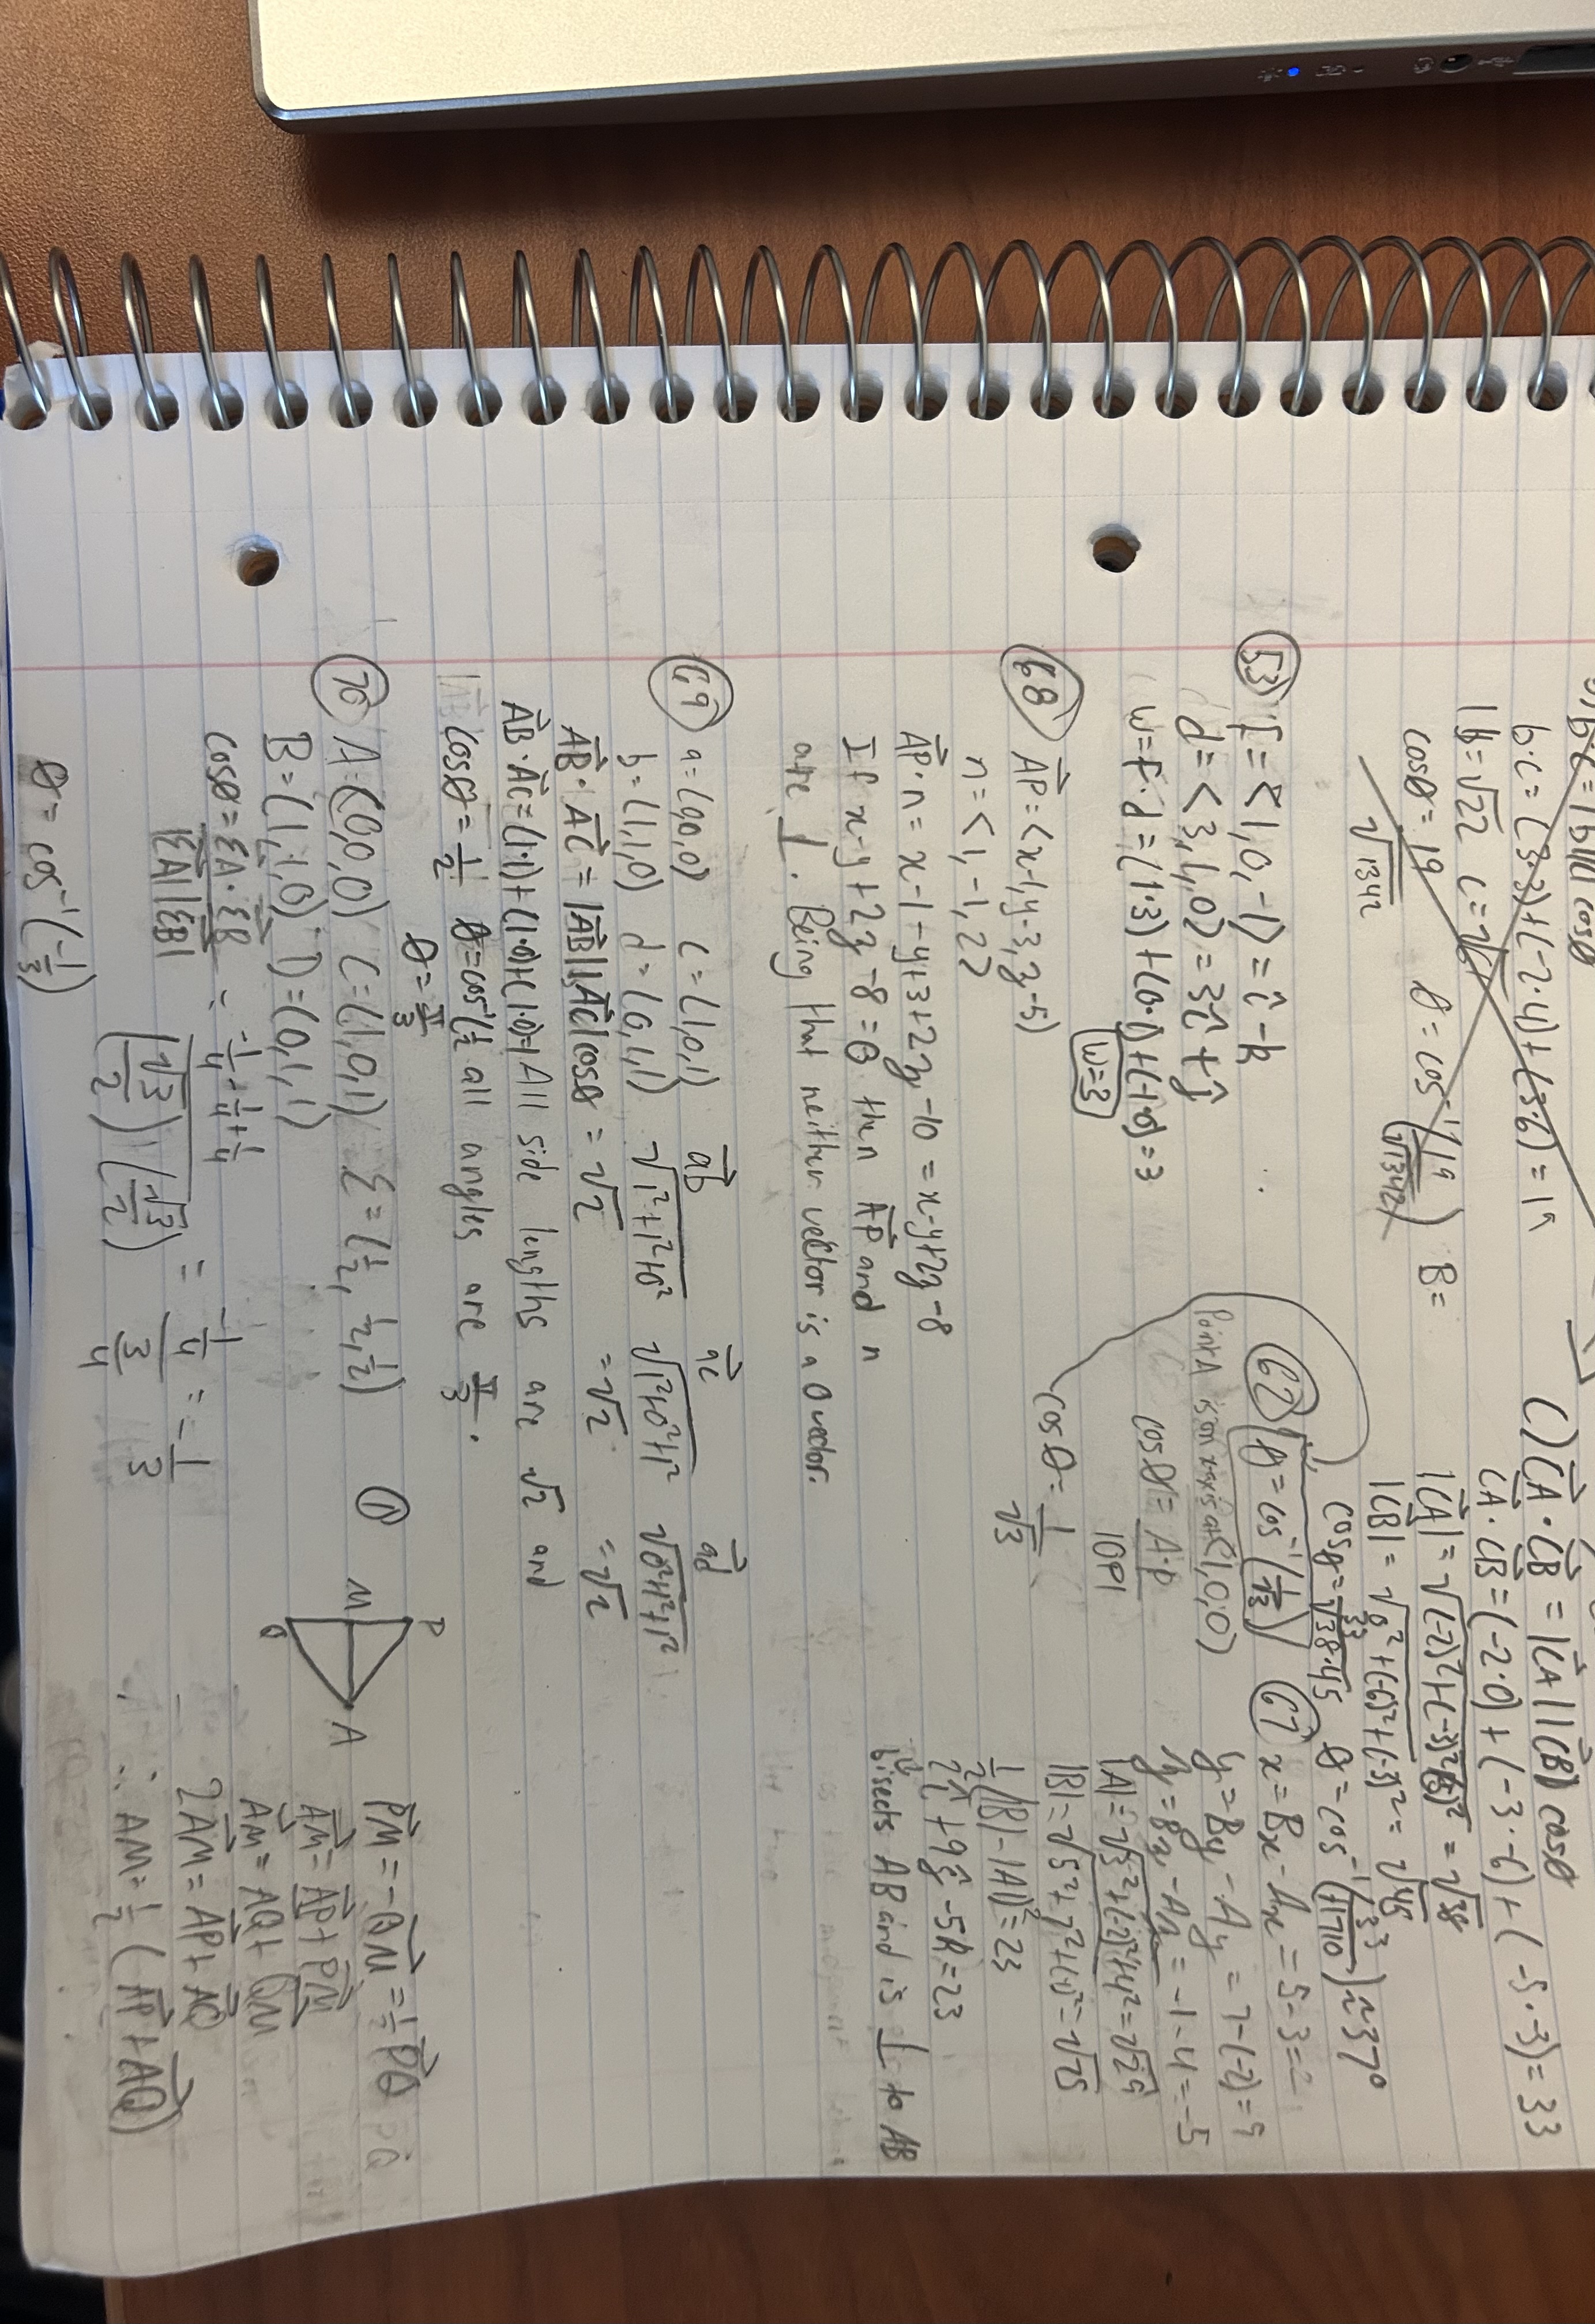 b·c = (3·3)+(-2·4)+(3·6) = 19
|B| = √22
cosθ = 19
√1342
θ = cos⁻¹(19
√1342) B =
C) CA·CB = |CA||CB| cosθ
CA·CB = (-2·0)+(-3·-6)+(-5·-3) = 33
|CA| = √(-2)²+(-3)²+(-5)² = √38
|CB| = √0²+(-6)²+(-3)² = √45
cosθ = 33
√38·45 θ = cos⁻¹(33
√1710) ≈ 37°
53) F = <1, 0, -1> = î - k
d = <3, 1, 0> = 3î + ĵ
w = F·d = (1·3)+(0·1)+(-1·0) = 3
w=3
62) θ = cos⁻¹(1
√3)
Point A is on x-axis at (1,0,0)
cosθ = A·P
|OP|
cosθ = 1
√3
67) x = Bx - Ax = 5-3=2
y = By - Ay = 7-(-2) = 9
z = Bz - Az = -1-4 = -5
|A| = √3²+(-2)²+4² = √29
|B| = √5²+7²+(-1)² = √75
½(|B|²-|A|²) = 23
2î + 9ĵ - 5k = 23
bisects AB and is ⊥ to AB
68) AP = <x-1, y-3, z-5>
n = <1, -1, 2>
AP·n = x-1-y+3+2z-10 = x-y+2z-8
If x-y+2z-8=0 then AP and n
are ⊥. Being that neither vector is a 0 vector.
69) a=(0,0,0) c=(1,0,1) ab ac ad
b=(1,1,0) d=(0,1,1) √1²+1²+0² √1²+0²+1² √0²+1²+1²
AB·AC = |AB||AC|cosθ = √2 = √2 = √2
AB·AC = (1·1)+(1·0)+(1·0)=1 All side lengths are √2 and
cosθ = 1/2 θ=cos⁻¹(½ all angles are π/3.
θ = π/3
70) A=(0,0,0) C=(1,0,1) E=(½, ½, ½)
B=(1,1,0) D=(0,1,1)
cosθ = EA·EB
|EA||EB| = -¼-¼+¼
(√3/2)(√3/2) = -¼
¾ = -1/3
θ = cos⁻¹(-1/3)
① P
M
Q
A
PM = -QM = ½PQ PQ
AM = AP + PM
AM = AQ + QM
2AM = AP + AQ
∴ AM = ½(AP + AQ)